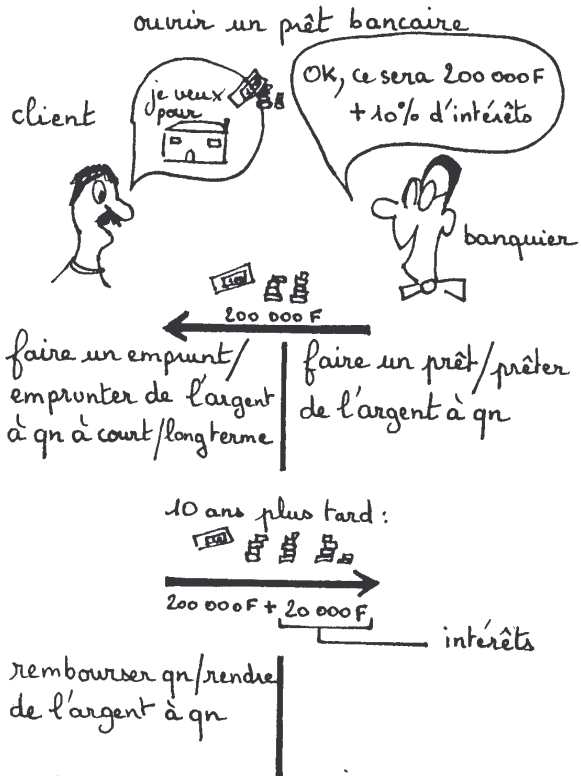 ouvrir un prêt bancaire
client
je veux
pour
OK, ce sera 200 000 F
+ 10% d'intérêts
banquier
200 000 F
faire un emprunt/
emprunter de l'argent
à qn à court/long terme
faire un prêt/prêter
de l'argent à qn
10 ans plus tard :
200 000 F + 20 000 F
intérêts
rembourser qn/rendre
de l'argent à qn